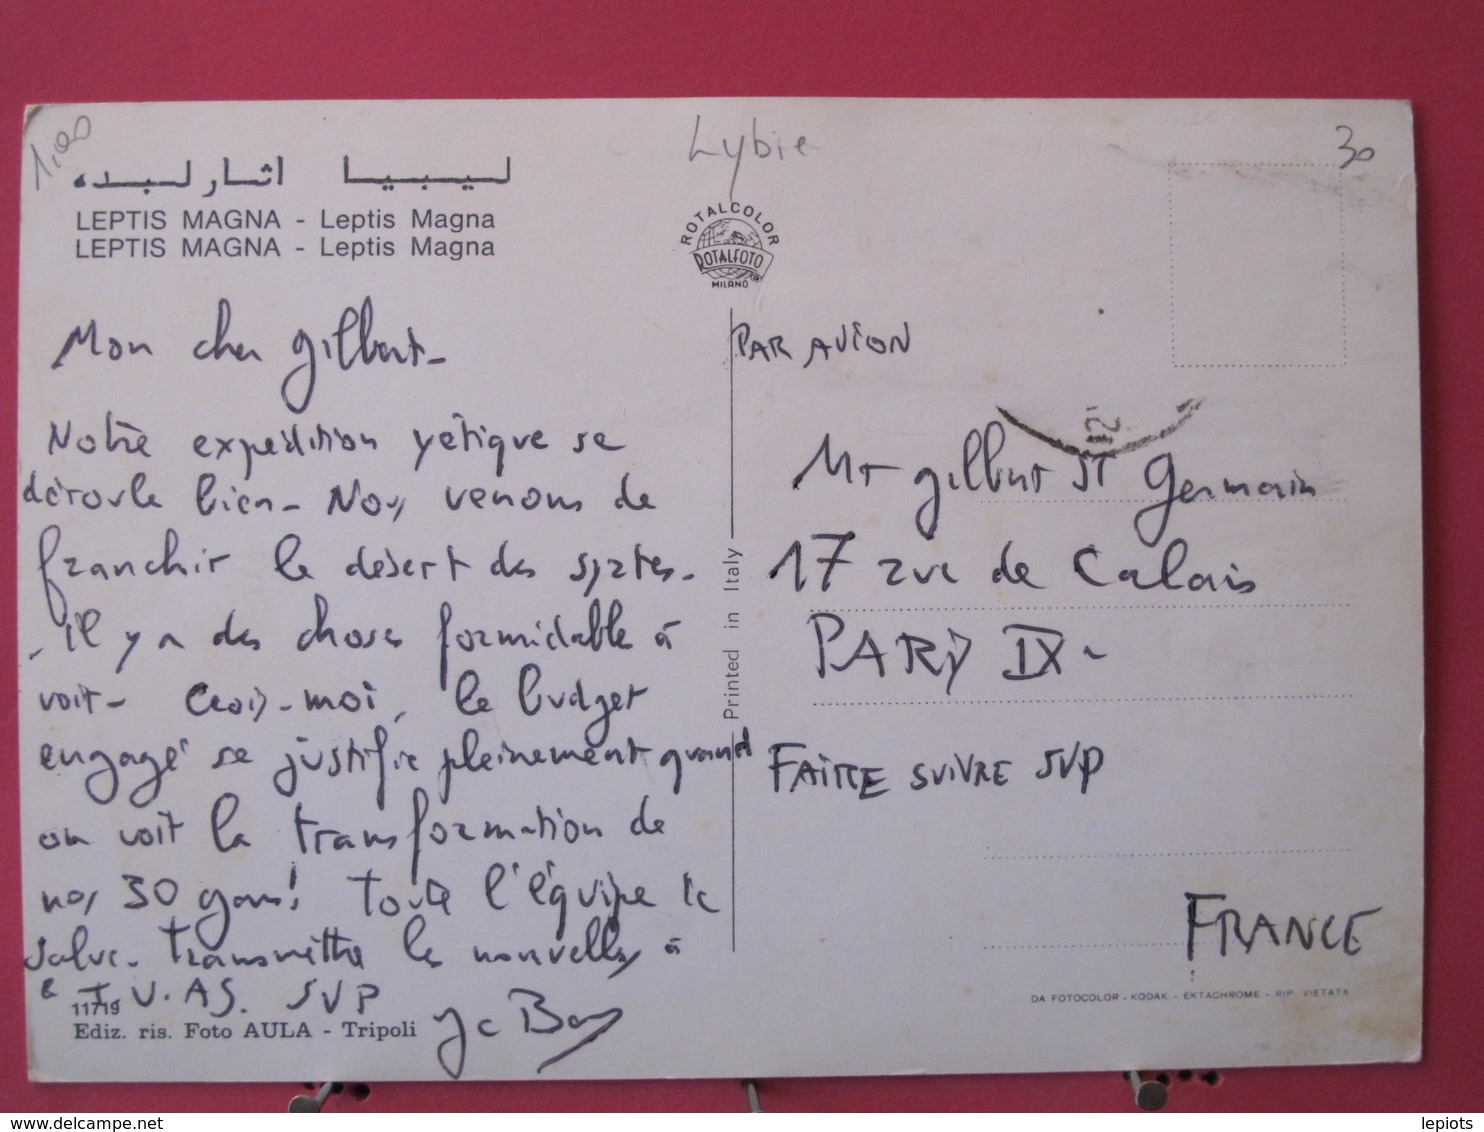 1,00
Lybie
30
ليبيا اثار لبده
LEPTIS MAGNA - Leptis Magna
LEPTIS MAGNA - Leptis Magna
ROTALCOLOR
ROTALFOTO
MILANO
Mon cher Gilbert -
Notre expédition yétique se
déroule bien - Nous venons de
franchir le désert des syrtes -
Il y a des choses formidables à
voir - Crois-moi, le budget
engagé se justifie pleinement quand
on voit la transformation de
nos 30 gars! Toute l'équipe te
salue. Transmettre les nouvelles à
SVP
Jc
11719
Ediz. ris. Foto AULA - Tripoli
Printed in Italy
PAR AVION
Mr Gilbert St Germain
17 rue de Calais
PARIS IX -
FAIRE SUIVRE SVP
FRANCE
DA FOTOCOLOR - KODAK - EKTACHROME - RIP. VIETATA
lepiots